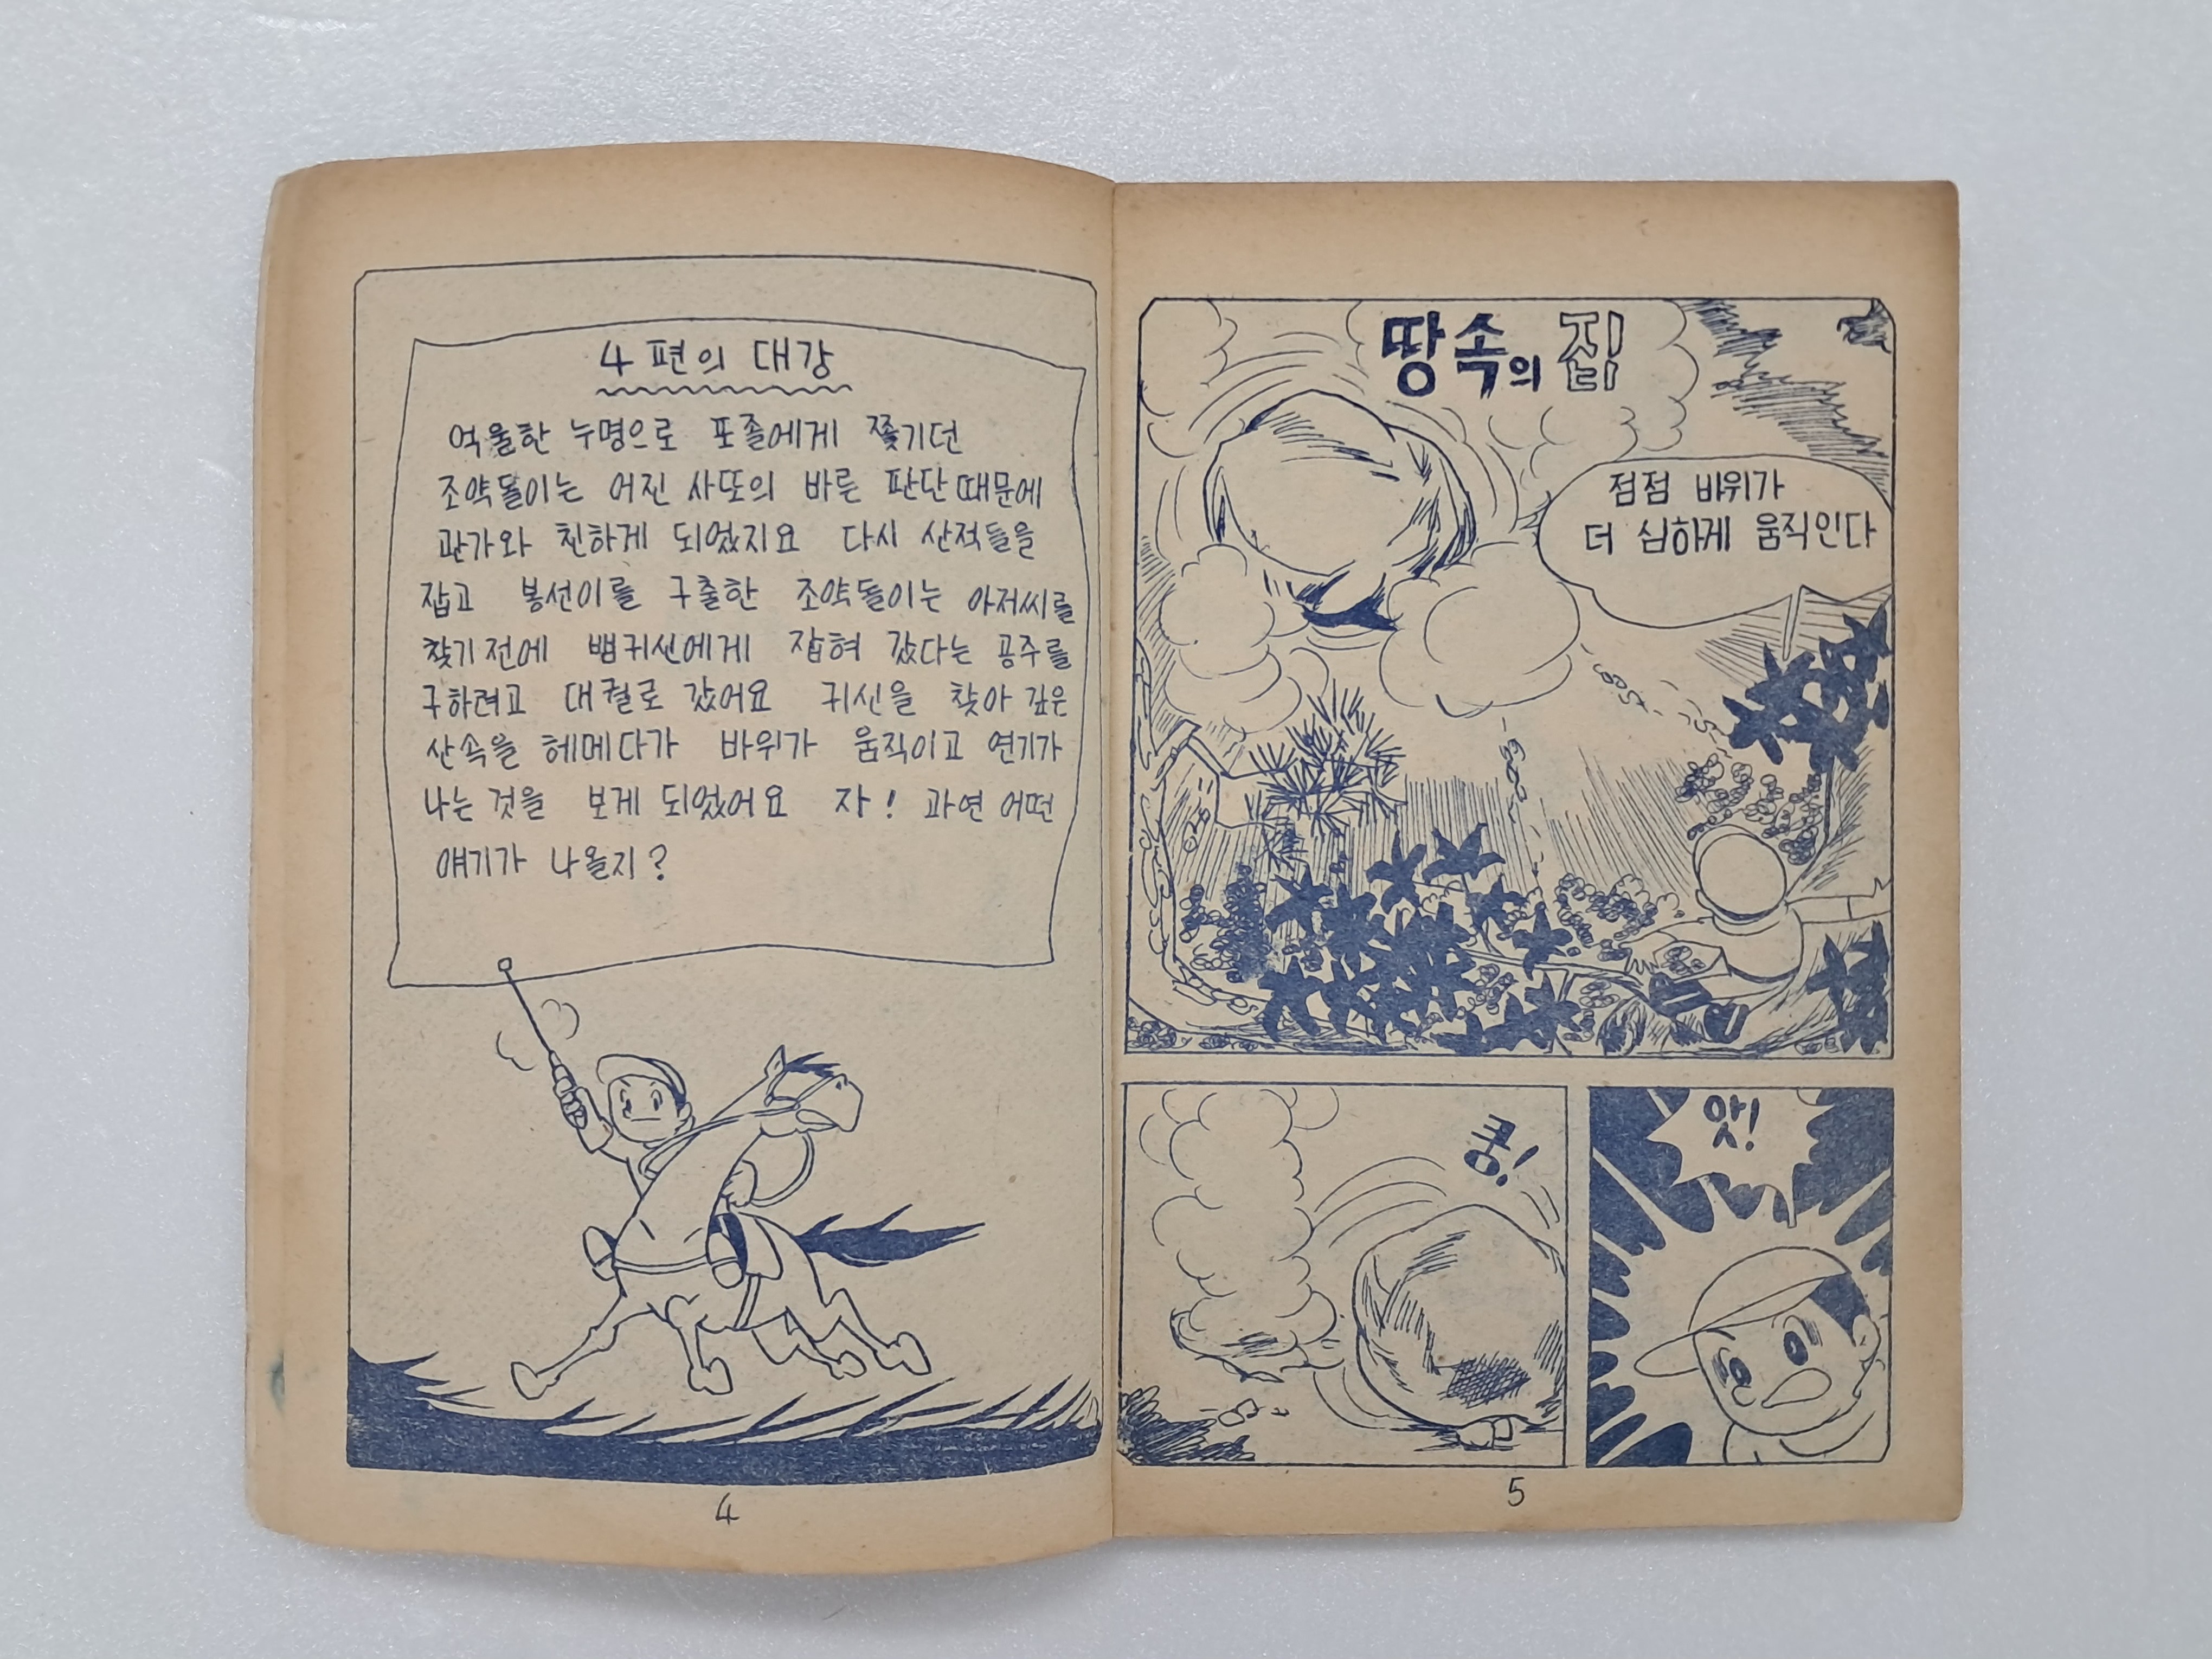 4편의 대강
억울한 누명으로 포졸에게 쫓기던
조약돌이는 어진 사또의 바른 판단때문에
관가와 친하게 되었지요 다시 산적들을
잡고 봉선이를 구출한 조약돌이는 아저씨를
찾기전에 뱀귀신에게 잡혀 갔다는 공주를
구하려고 대궐로 갔어요 귀신을 찾아 깊은
산속을 헤메다가 바위가 움직이고 연기가
나는 것을 보게 되었어요 자! 과연 어떤
얘기가 나올지?
4
땅속의 집
점점 바위가
더 심하게 움직인다
쿵!
앗!
5